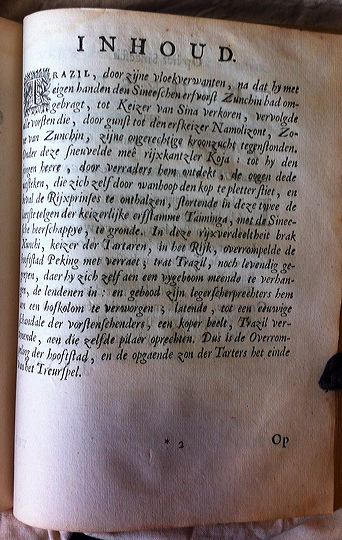 INHOUD.
TRAZIL, door zijne vloekverwanten, na dat hy met
eigen handen den Sineeschen erfvorst Zunchin had om-
gebragt, tot Keizer van Sina verkoren, vervolgde
de vorsten die, door gunst tot den erfkeizer Namolizont, Zo-
ne van Zunchin, zijne ongerechtige kroonzucht tegenstonden.
Onder deze sneuvelde mee rijxkantzler Kosa: tot hy den
jongen heere, door verraders hem ontdekt, de oogen dede
uitsteken, die zich zelf door wanhoop den kop te pletter stiet, en
beval de Rijxprinses te onthalzen, stortende in deze twee de
leerste telgen der keizerlijke erfstamme Taiminga, met de Sinee-
sche heerschappye, te gronde. In deze rijxverdeeltheit brak
Xunchi, keizer der Tartaren, in het Rijk, overrompelde de
hooftstad Peking met verraet; trat Trazil, noch levendig ge-
grepen, daer hy zich zelf aen een vygeboom meende te verhan-
gen, de lendenen in: en gebood zijn legerscherprechters hem
aen een hofkolom te verworgen; latende, tot een eeuwige
schandale der vorstenschenders, een koper beelt, Trazil ver-
beeldende, aen die zelfde pilaer oprechten. Dus is de Overrom-
peling der hooftstad, en de opgaende zon der Tarters het einde
van het Treurspel.
* 2
Op